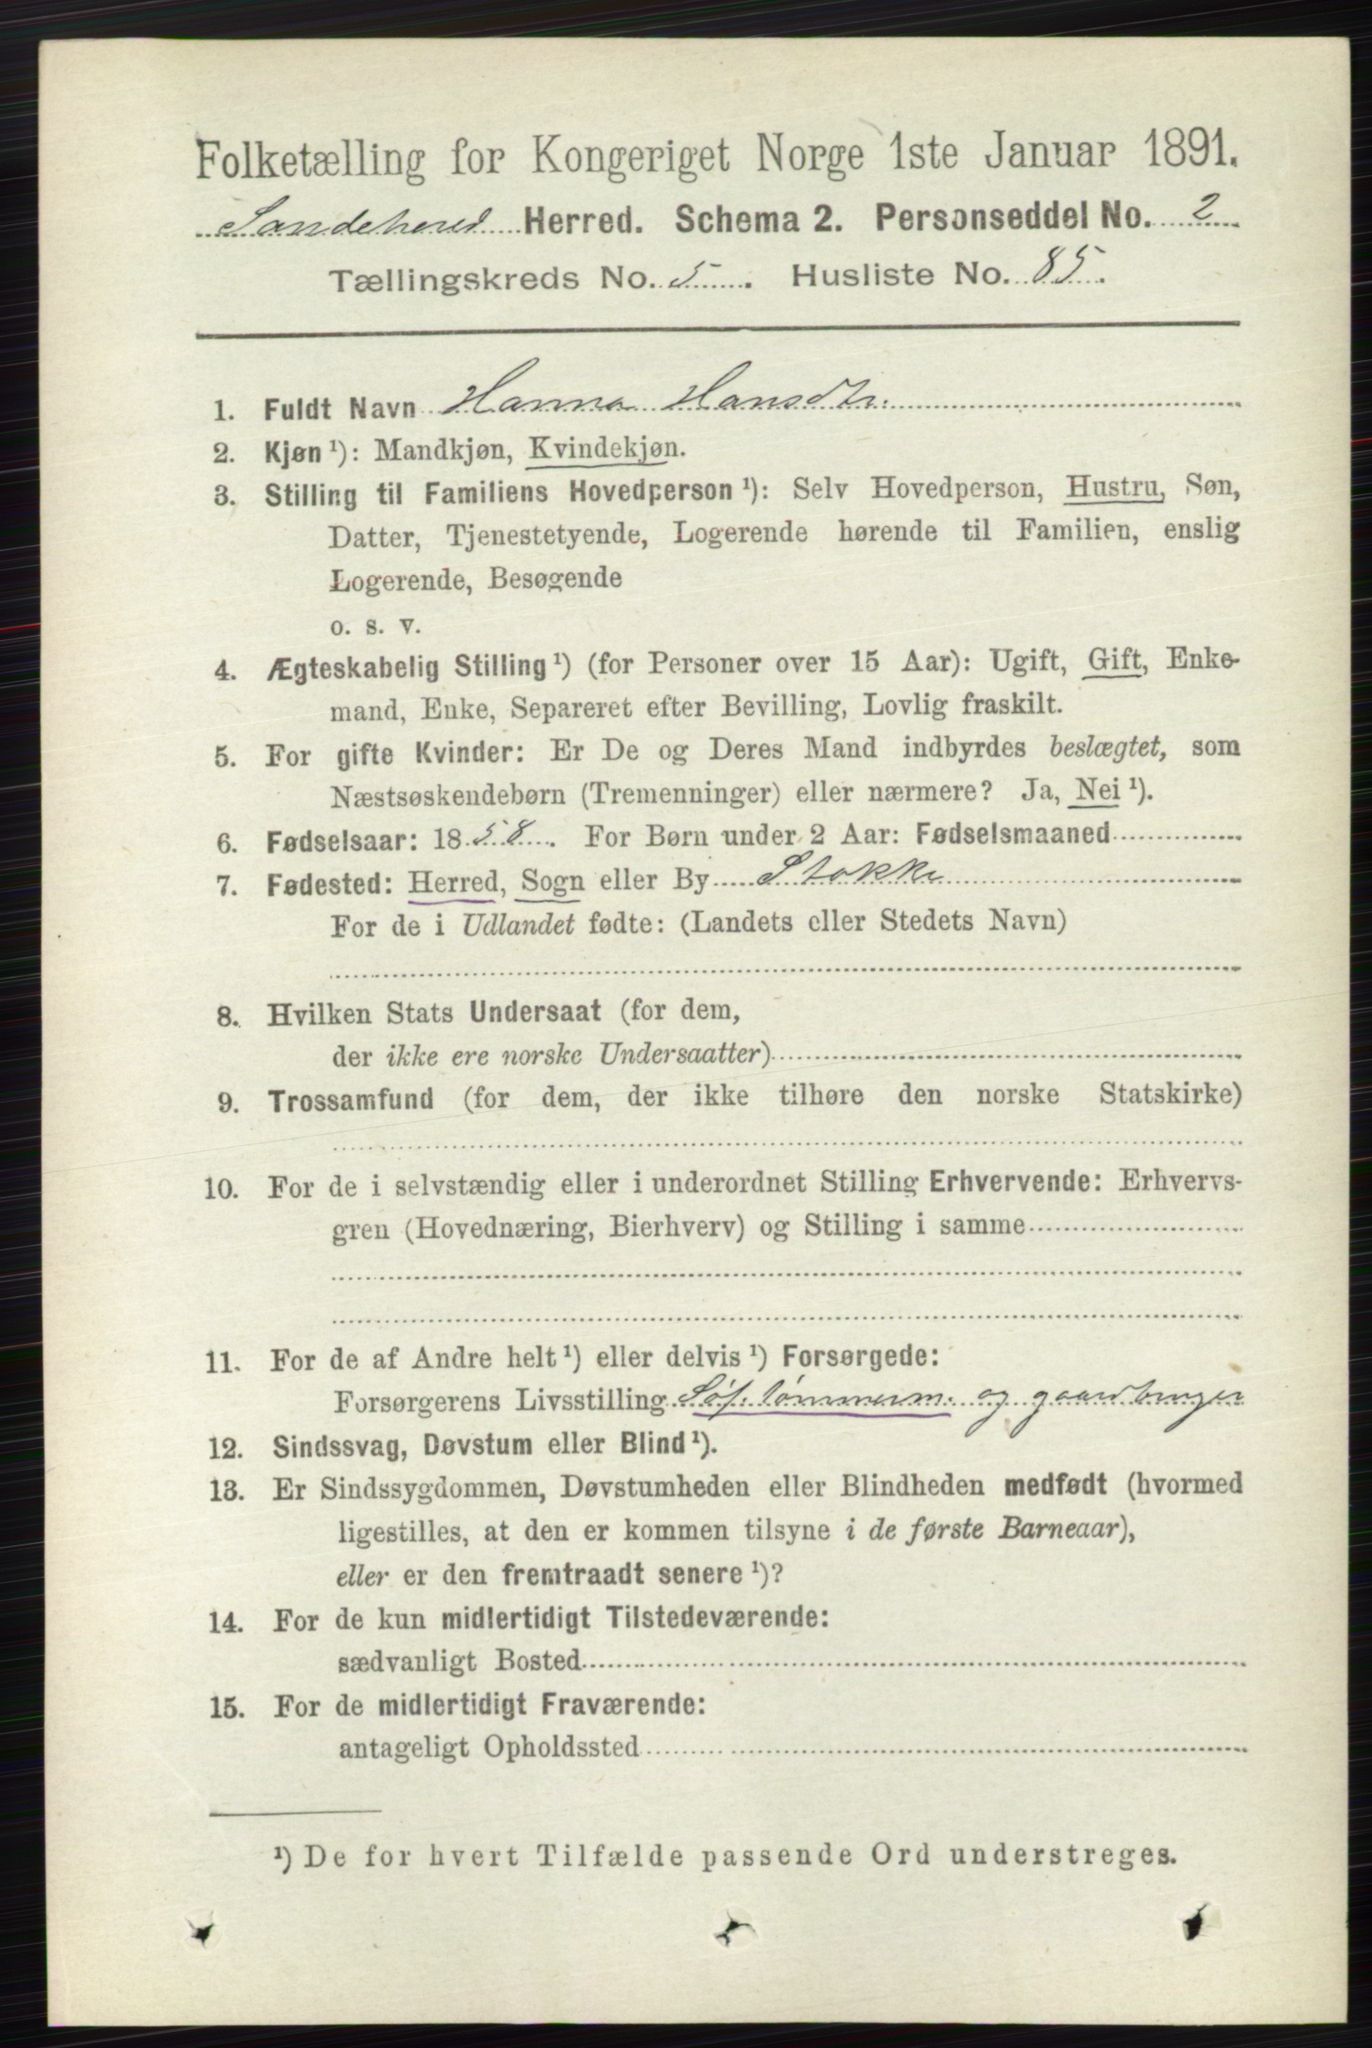 Folketælling for Kongeriget Norge 1ste Januar 1891.
Sandeherred Herred. Schema 2. Personseddel No. 2
Tællingskreds No. 5. Husliste No. 85.
1. Fuldt Navn Hanna Hansdtr.
2. Kjøn ¹): Mandkjøn, Kvindekjøn.
3. Stilling til Familiens Hovedperson ¹): Selv Hovedperson, Hustru, Søn,
Datter, Tjenestetyende, Logerende hørende til Familien, enslig
Logerende, Besøgende
o. s. v.
4. Ægteskabelig Stilling ¹) (for Personer over 15 Aar): Ugift, Gift, Enke-
mand, Enke, Separeret efter Bevilling, Lovlig fraskilt.
5. For gifte Kvinder: Er De og Deres Mand indbyrdes beslægtet, som
Næstsøskendebørn (Tremenninger) eller nærmere? Ja, Nei ¹).
6. Fødselsaar: 1858. For Børn under 2 Aar: Fødselsmaaned
7. Fødested: Herred, Sogn eller By Stokke
For de i Udlandet fødte: (Landets eller Stedets Navn)
8. Hvilken Stats Undersaat (for dem,
der ikke ere norske Undersaatter)
9. Trossamfund (for dem, der ikke tilhøre den norske Statskirke)
10. For de i selvstændig eller i underordnet Stilling Erhvervende: Erhvervs-
gren (Hovednæring, Bierhverv) og Stilling i samme
11. For de af Andre helt ¹) eller delvis ¹) Forsørgede:
Forsørgerens Livsstilling Søf. tømmerm. og gaardbruger
12. Sindssvag, Døvstum eller Blind ¹).
13. Er Sindssygdommen, Døvstumheden eller Blindheden medfødt (hvormed
ligestilles, at den er kommen tilsyne i de første Barneaar),
eller er den fremtraadt senere ¹)?
14. For de kun midlertidigt Tilstedeværende:
sædvanligt Bosted
15. For de midlertidigt Fraværende:
antageligt Opholdssted
¹) De for hvert Tilfælde passende Ord understreges.